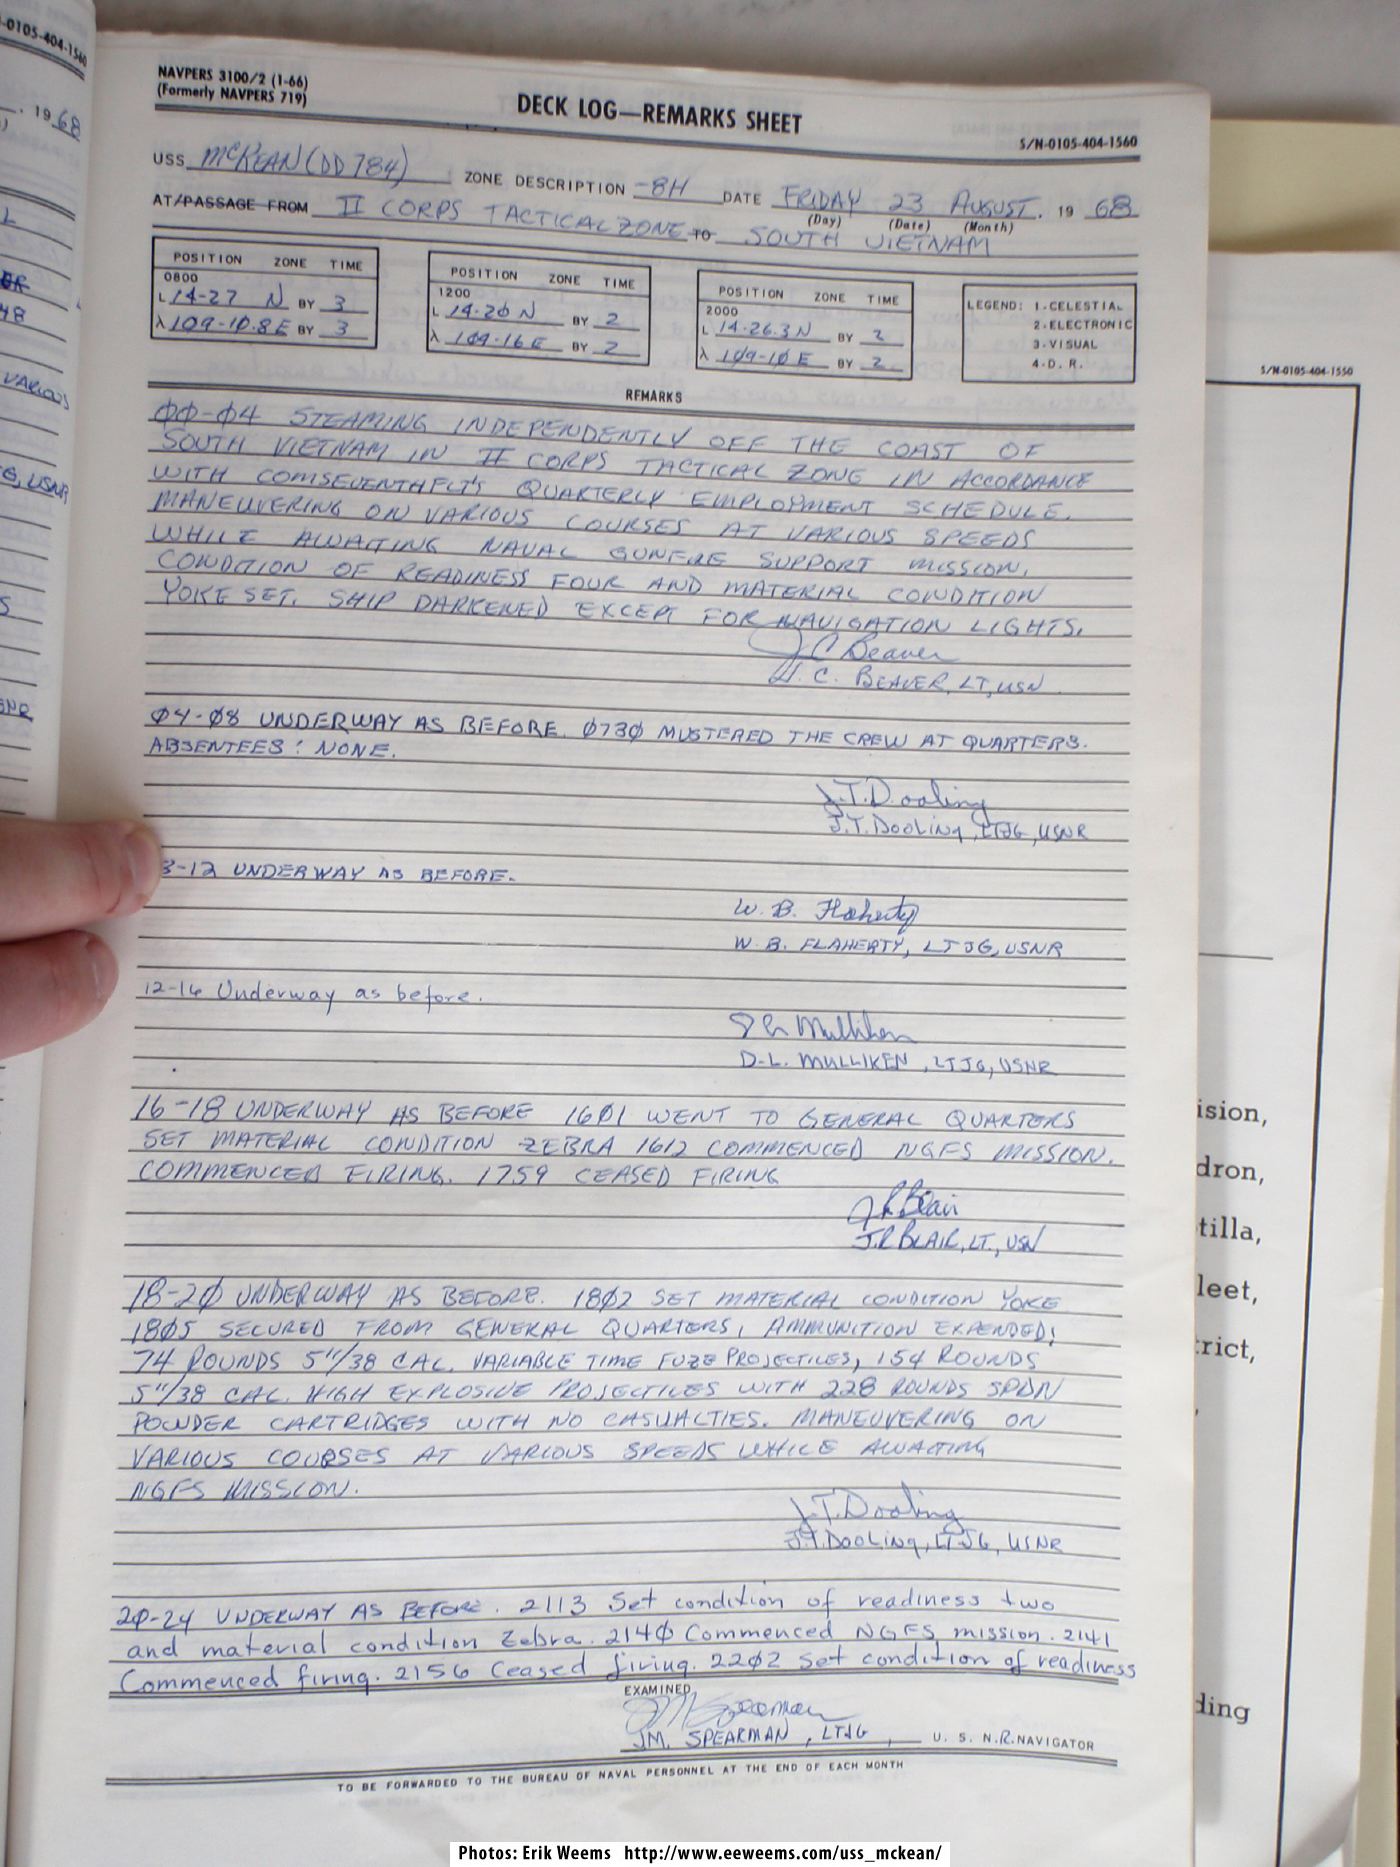 -0105-404-1560
. 1968
VARIOUS
USNR
NAVPERS 3100/2 (1-66)
(Formerly NAVPERS 719)
DECK LOG—REMARKS SHEET
S/N-0105-404-1560
USS MCKEAN (DD 784) ZONE DESCRIPTION -8H DATE FRIDAY 23 AUGUST. 19 68
(Day) (Date) (Month)
AT/PASSAGE FROM II CORPS TACTICAL ZONE TO SOUTH VIETNAM
POSITION ZONE TIME
0800
L 14-27 N BY 3
λ 109-10.8E BY 3
POSITION ZONE TIME
1200
L 14-20 N BY 2
λ 109-16 E BY 2
POSITION ZONE TIME
2000
L 14-26.3N BY 2
λ 109-10 E BY 2
LEGEND: 1-CELESTIAL
2-ELECTRONIC
3-VISUAL
4-D. R.
REMARKS
00-04 STEAMING INDEPENDENTLY OFF THE COAST OF
SOUTH VIETNAM IN II CORPS TACTICAL ZONE IN ACCORDANCE
WITH COMSEVENTHFLT'S QUARTERLY EMPLOYMENT SCHEDULE.
MANEUVERING ON VARIOUS COURSES AT VARIOUS SPEEDS
WHILE AWAITING NAVAL GUNFIRE SUPPORT MISSION.
CONDITION OF READINESS FOUR AND MATERIAL CONDITION
YOKE SET. SHIP DARKENED EXCEPT FOR NAVIGATION LIGHTS.
J C Beaver
J. C. BEAVER, LT, USN
04-08 UNDERWAY AS BEFORE. 0730 MUSTERED THE CREW AT QUARTERS.
ABSENTEES: NONE.
J.T. Dooling
J.T. Dooling, LTJG, USNR
-12 UNDERWAY AS BEFORE.
W. B. Flaherty
W. B. FLAHERTY, LTJG, USNR
12-16 Underway as before.
D L Mulliken
D-L. MULLIKEN, LTJG, USNR
16-18 UNDERWAY AS BEFORE 1601 WENT TO GENERAL QUARTERS
SET MATERIAL CONDITION ZEBRA 1612 COMMENCED NGFS MISSION.
COMMENCED FIRING. 1759 CEASED FIRING
J R Blair
J.R BLAIR, LT., USN
18-20 UNDERWAY AS BEFORE. 1802 SET MATERIAL CONDITION YOKE
1805 SECURED FROM GENERAL QUARTERS, AMMUNITION EXPENDED:
74 ROUNDS 5"/38 CAL. VARIABLE TIME FUZE PROJECTILES, 154 ROUNDS
5"/38 CAL. HIGH EXPLOSIVE PROJECTILES WITH 228 ROUNDS SPDN
POWDER CARTRIDGES WITH NO CASUALTIES. MANEUVERING ON
VARIOUS COURSES AT VARIOUS SPEEDS WHILE AWAITING
NGFS MISSION.
J.T. Dooling
J.T. Dooling, LTJG, USNR
20-24 UNDERWAY AS BEFORE. 2113 Set condition of readiness two
and material condition Zebra. 2140 Commenced NGFS mission. 2141
Commenced firing. 2156 Ceased firing. 2202 Set condition of readiness
EXAMINED
JM Spearman
JM. SPEARMAN, LTJG, U. S. N.R. NAVIGATOR
TO BE FORWARDED TO THE BUREAU OF NAVAL PERSONNEL AT THE END OF EACH MONTH
S/N-0105-404-1550
ision,
dron,
tilla,
leet,
trict,
ding
Photos: Erik Weems http://www.eeweems.com/uss_mckean/